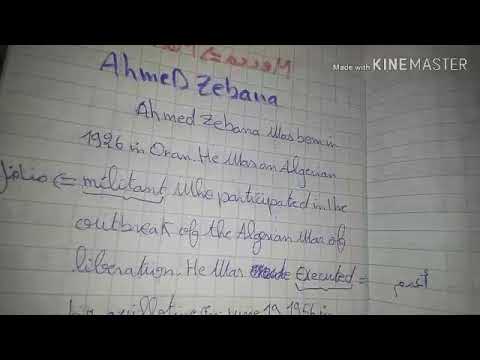 Made with KINEMASTER
Ahmed Zebana
Ahmed Zebana Was born in
1926 in Oran. He Was an Algerian
مناضل <= militant Who participated in the
outbreak of the Algerian War of
liberation. He Was Executed = أعدم
by guillotine in June 19 1956 in